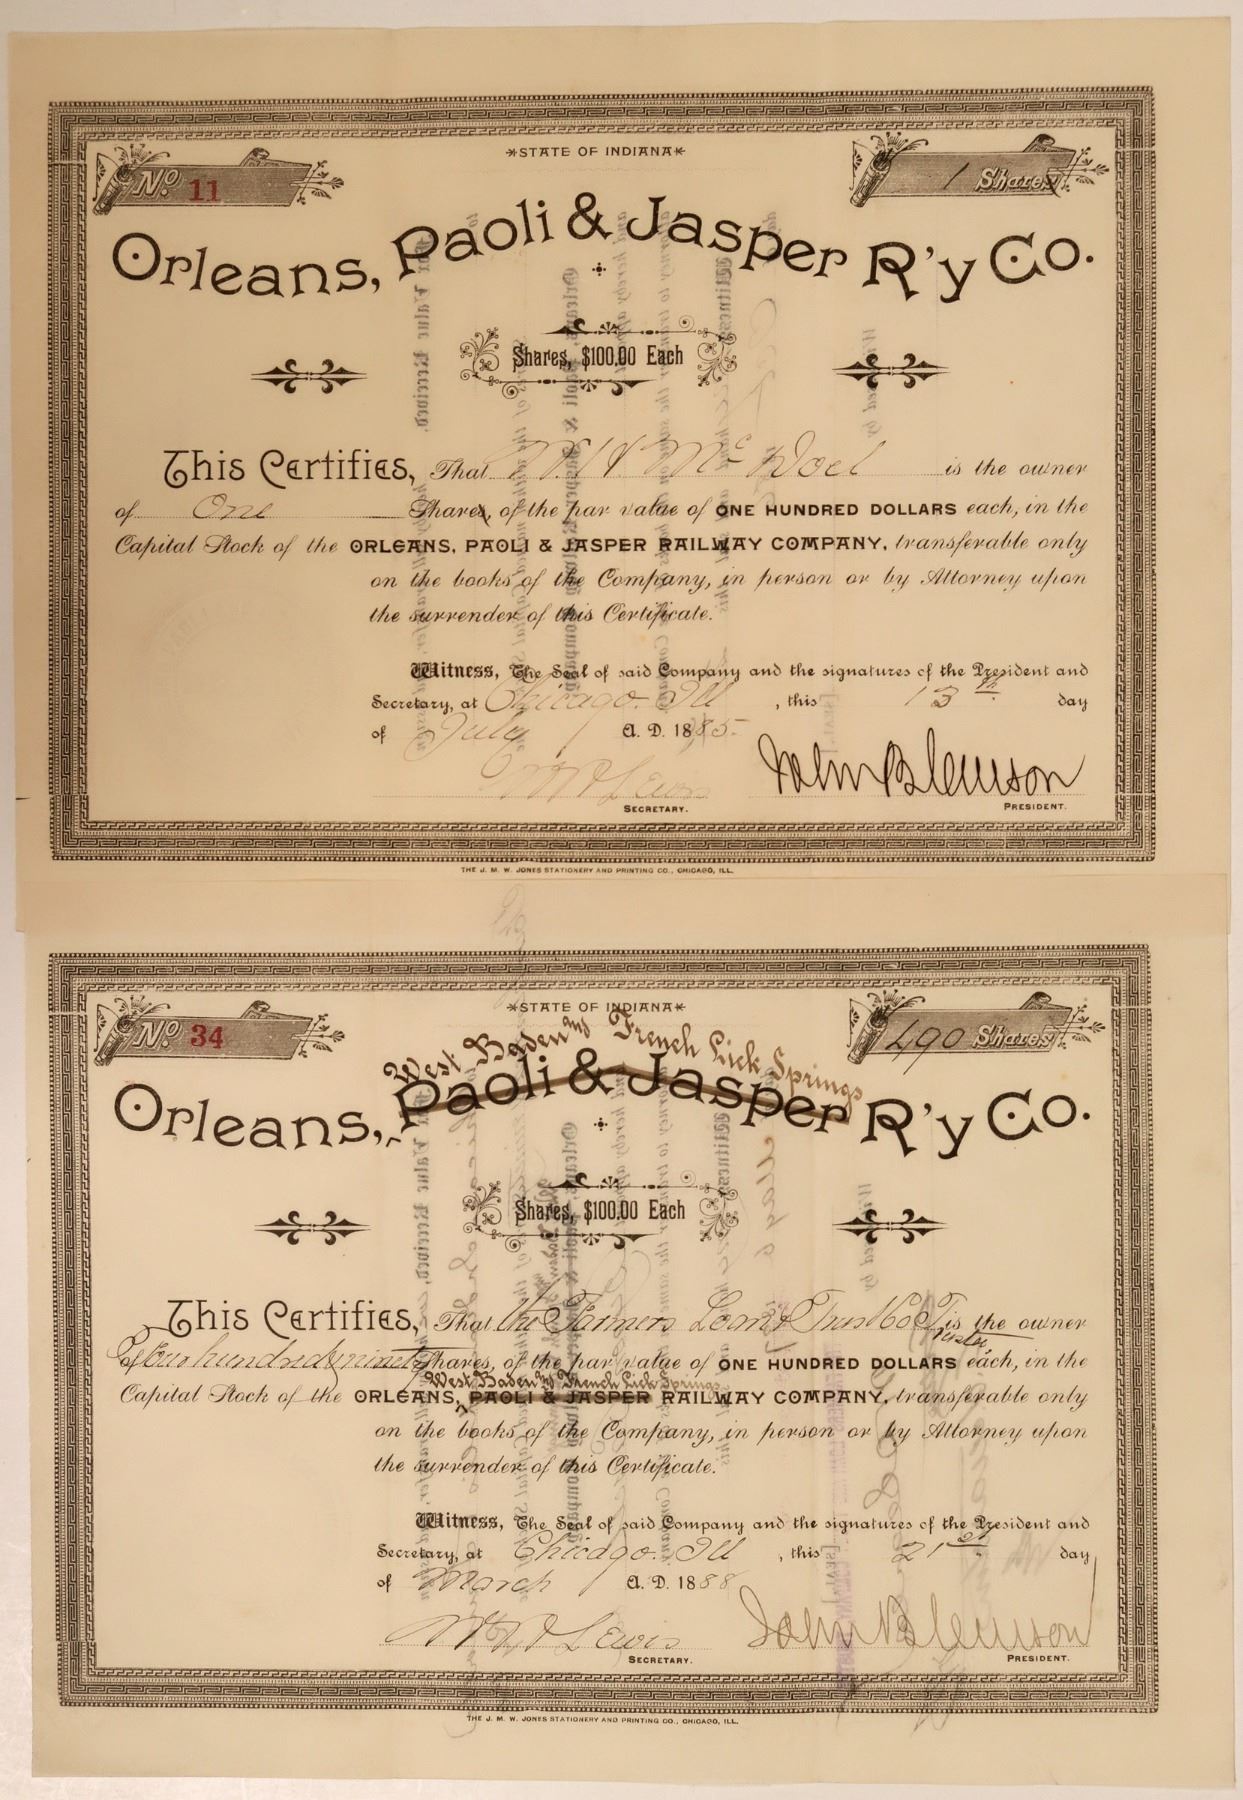 *STATE OF INDIANA*
No 11
1 Shares
Orleans, Paoli & Jasper R'y Co.
Shares, $100.00 Each
This Certifies, That W. H. Mc Doel is the owner
of One Shares, of the par value of ONE HUNDRED DOLLARS each, in the
Capital Stock of the ORLEANS, PAOLI & JASPER RAILWAY COMPANY, transferable only
on the books of the Company, in person or by Attorney upon
the surrender of this Certificate.
Witness, The Seal of said Company and the signatures of the President and
Secretary, at Chicago. Ill, this 13th day
of July A. D. 1885
Lewis
SECRETARY.
PRESIDENT.
THE J. M. W. JONES STATIONERY AND PRINTING CO., CHICAGO, ILL.
*STATE OF INDIANA*
No 34
490 Shares
West Baden and French Lick Springs
Orleans, Paoli & Jasper R'y Co.
Shares, $100.00 Each
This Certifies, That the Farmers Loan & Trust Co Trustee is the owner
of Four hundred ninety Shares, of the par value of ONE HUNDRED DOLLARS each, in the
West Baden and French Lick Springs
Capital Stock of the ORLEANS, PAOLI & JASPER RAILWAY COMPANY, transferable only
on the books of the Company, in person or by Attorney upon
the surrender of this Certificate.
Witness, The Seal of said Company and the signatures of the President and
Secretary, at Chicago. Ill, this 21st day
of March A. D. 1888
Lewis
SECRETARY.
PRESIDENT.
THE J. M. W. JONES STATIONERY AND PRINTING CO., CHICAGO, ILL.